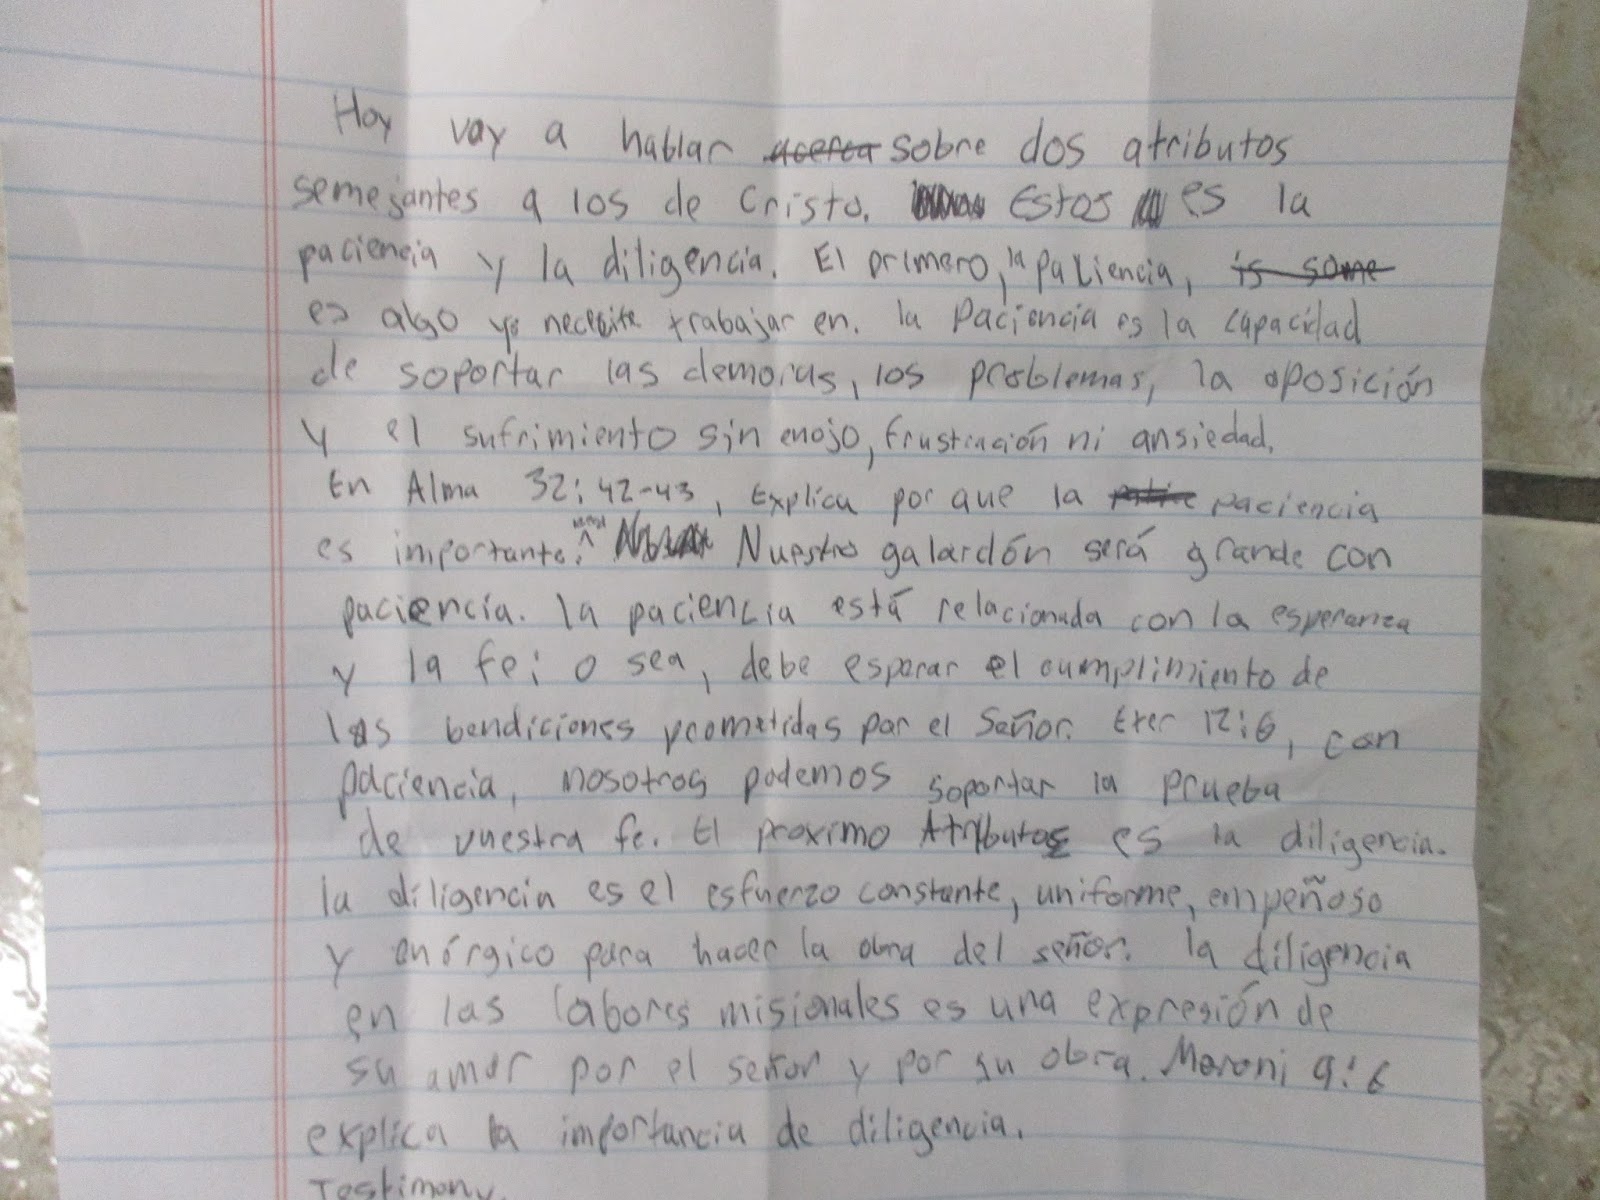 Hoy voy a hablar acerca sobre dos atributos
semejantes a los de Cristo. Estos es la
paciencia y la diligencia. El primero, la paciencia, is some
es algo yo necesite trabajar en. la paciencia es la capacidad
de soportar las demoras, los problemas, la oposición
y el sufrimiento sin enojo, frustración ni ansiedad.
En Alma 32:42-43, Explica por que la paciencia
es importante. Nuestro galardón será grande con
paciencia. la paciencia está relacionada con la esperanza
y la fe; o sea, debe esperar el cumplimiento de
las bendiciones prometidas por el Señor. Eter 12:6, con
paciencia, nosotros podemos soportar la prueba
de vuestra fe. El proximo Atributos es la diligencia.
la diligencia es el esfuerzo constante, uniforme, empeñoso
y enérgico para hacer la obra del señor. la diligencia
en las labores misionales es una expresión de
su amor por el señor y por su obra. Moroni 9:6
explica la importancia de diligencia.
Testimony.